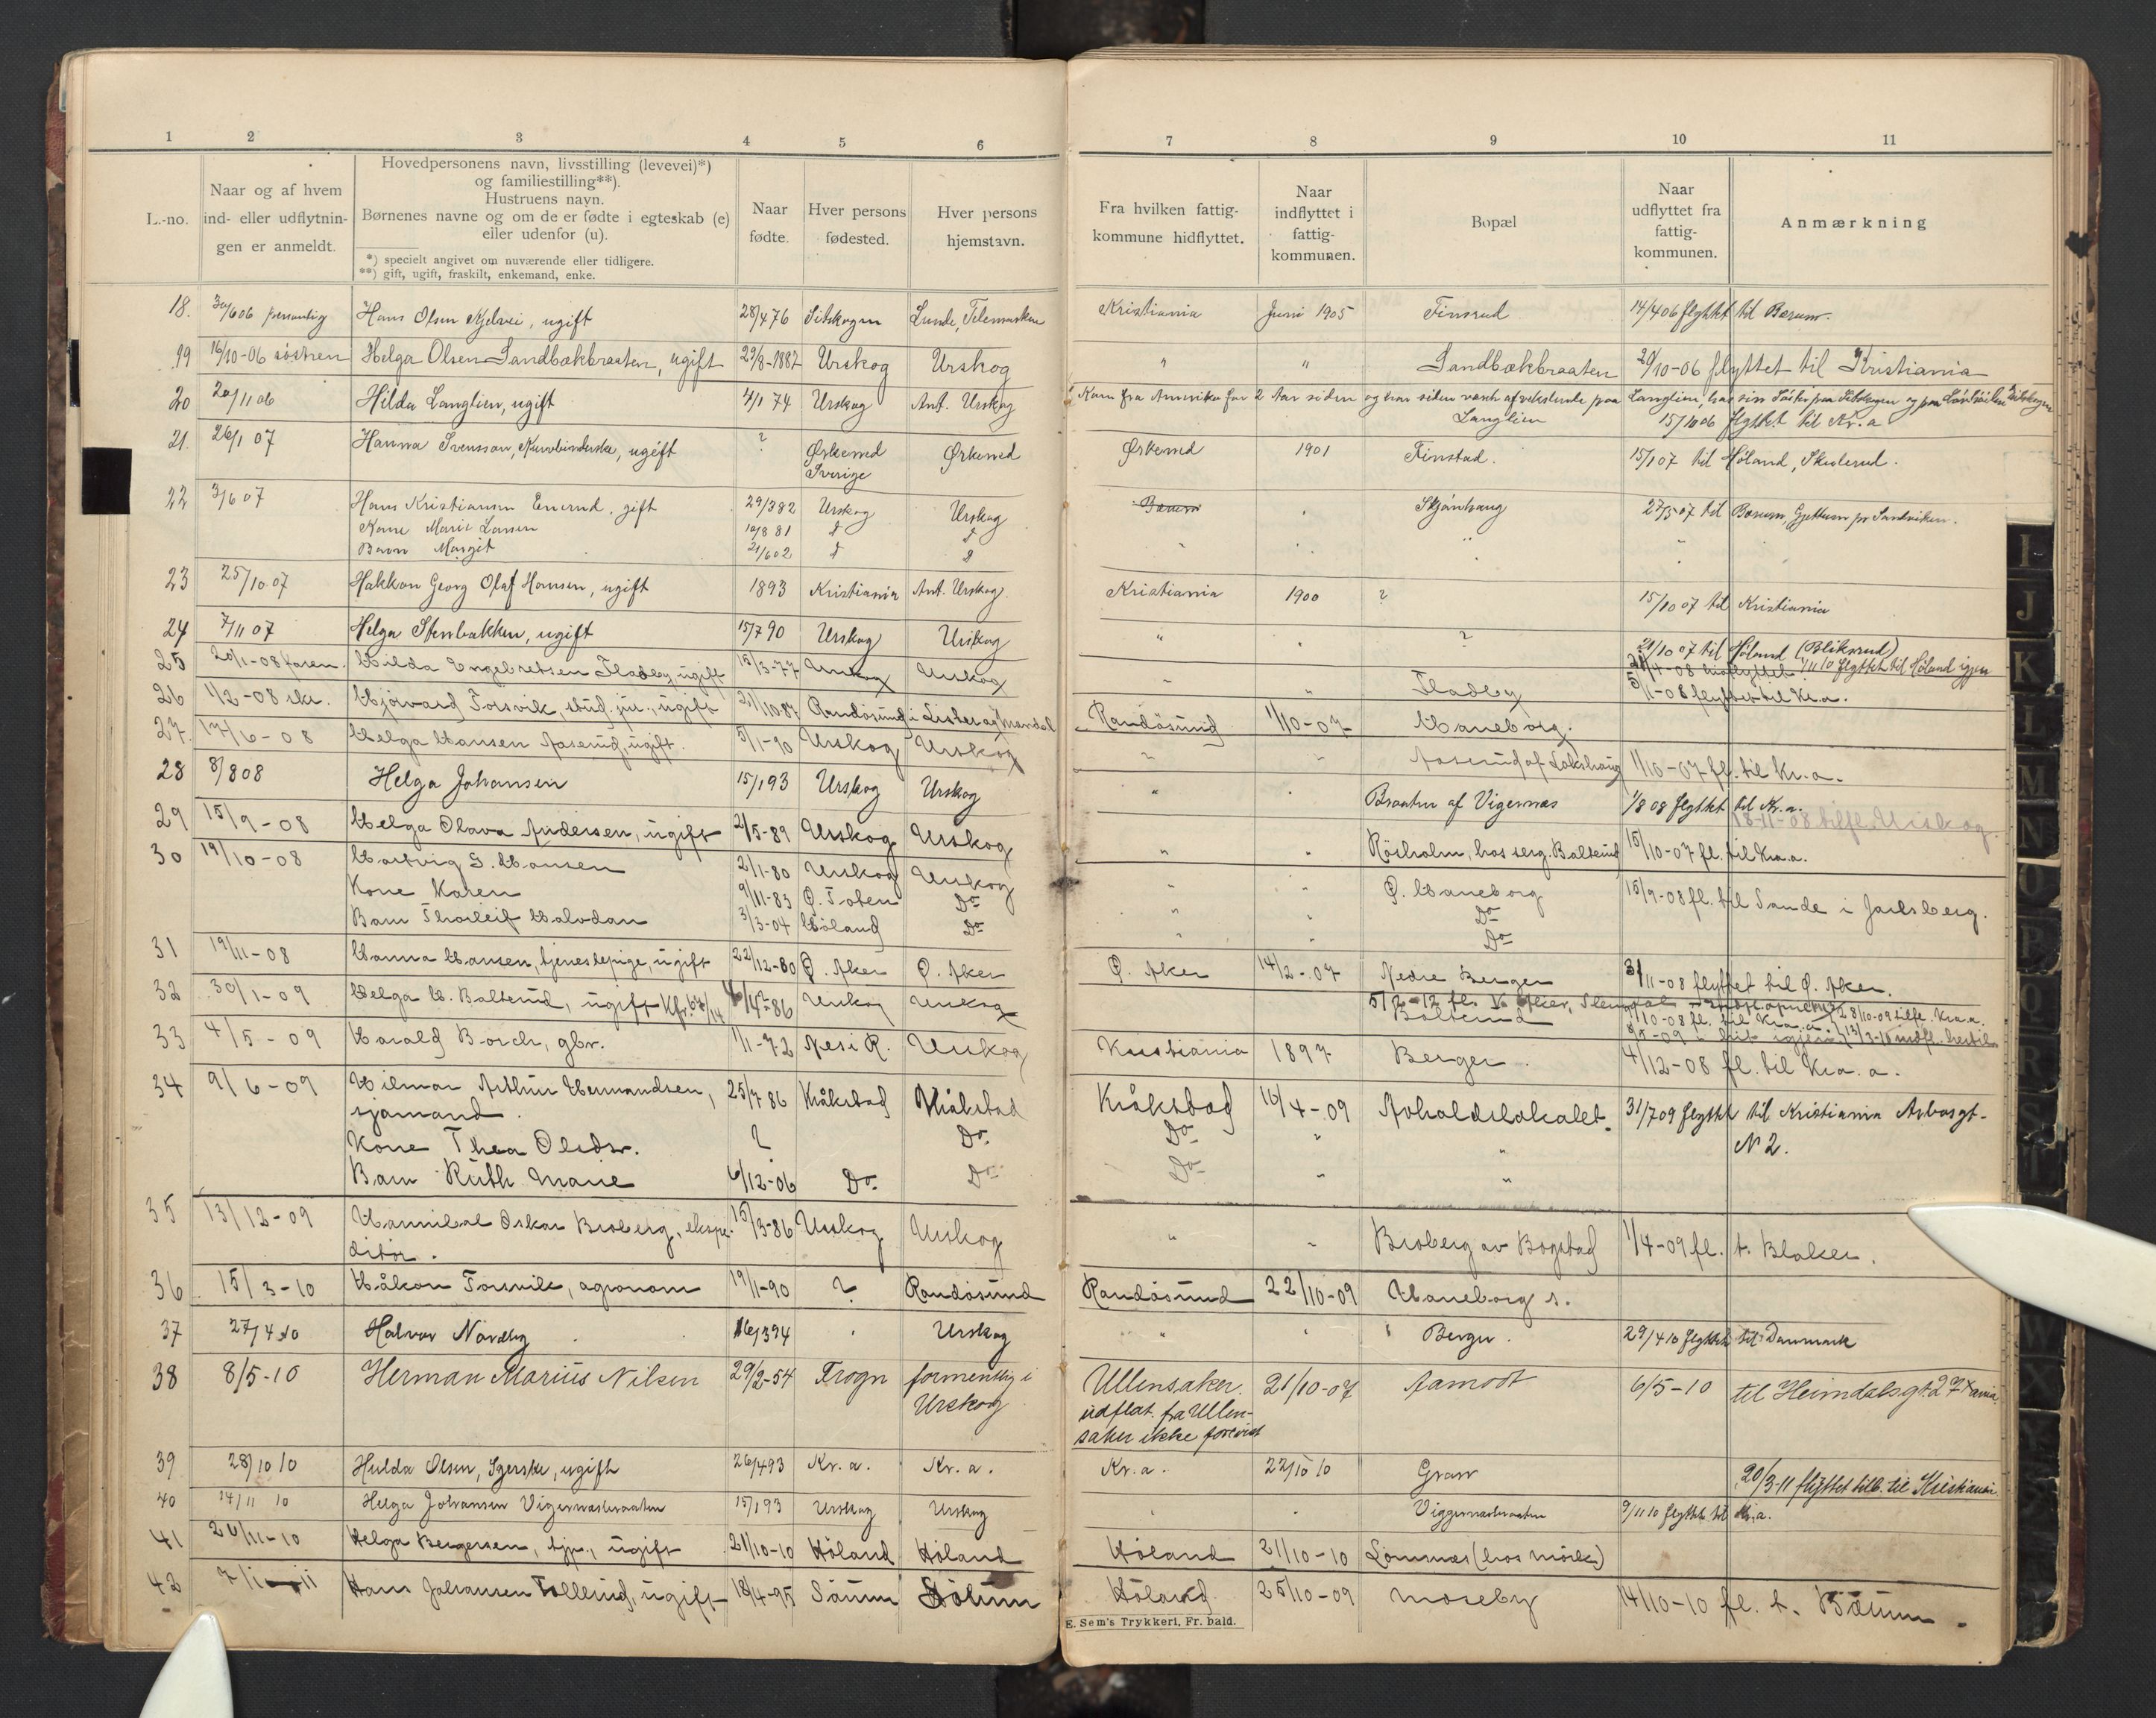 1 2 3 4 5 6 7 8 9 10 11
L.-no. Naar og af hvem ind- eller udflytnin-gen er anmeldt.
Hovedpersonens navn, livsstilling (levevei)*)
og familiestilling**).
Hustruens navn.
Børnenes navne og om de er fødte i egteskab (e)
eller udenfor (u).
*) specielt angivet om nuværende eller tidligere.
**) gift, ugift, fraskilt, enkemand, enke.
Naar fødte.
Hver persons fødested.
Hver persons hjemstavn.
Fra hvilken fattig-kommune hidflyttet.
Naar indflyttet i fattig-kommunen.
Bopæl
Naar udflyttet fra fattig-kommunen.
Anmærkning
18. 30/6 06 personlig Hans Olsen Kjelvei, ugift 28/4 76 Sitskogen Lunde, Telemarken Kristiania Juni 1905 Finsrud 14/4 06 flyttet til Bærum.
19 16/10-06 søstren Helga Olsen Sandbækbraaten, ugift 29/8-1887 Urskog Urskog " " Sandbækbraaten 20/10-06 flyttet til Kristiania
20 20/11 06 Hilda Langlien, ugift 4/1 74 Urskog Ant. Urskog Kom fra Amerika for 2 Aar siden og har siden været afvekslende paa Langlien, hos sin Søster paa Sitskogen
Langlien 15/10 06 flyttet til Kr.a
21. 26/1 07 Hanna Svensson, Kurvbinderske, ugift ? Ørkened Ørkened Ørkened 1901 Finstad. 15/1 07 til Høland, Skulerud.
Sverige
22 3/6 07 Hans Kristiansen Enerud, gift 29/3 82 Urskog Urskog Bærum Skjønhaug 27/5 07 til Bærum, Gjettum pr Sandviken.
Kone Marie Larsen 10/8 81 d d
Barn Margit 21/6 02 d d
23 25/10 07 Hakkon Georg Olaf Hansen, ugift 1893 Kristiania Ant. Urskog. Kristiania 1900 ? 15/10 07 til Kristiania
24 7/11 07 Helga Stenbakken, ugift 15/7 90 Urskog Urskog " ? 21/10 07 til Høland (Bliksrud)
1/11 10 flyttet til Høland igjen
25 20/1-08 faren. Hilda Engebretsen Fladeby, ugift 15/3-77 Urskog Urskog " " Fladeby 5/1-08 flyttet til Kr.a.
26 1/2-08 Hjörvard Torsvik, stud. jur., ugift 21/10 87 Randösund i Lister og Mandal Randösund 1/10-07 Haneborg.
27. 17/6-08 Helga Hansen Aaserud, ugift. 5/1-90 Urskog Urskog " " Aaserud af Lokshaug 1/10-07 fl. til Kr.a.
28 8/8 08 Helga Johansen 15/1 93 Urskog Urskog " Braaten af Vigernæs 1/8 08 flyttet til Kr.a.
18-11-08 tilfl. Urskog.
29 15/9-08 Helga Olava Andersen, ugift 2/5-89 Urskog Urskog " " Rösholm, hos serg. Bolterud 15/10-07 fl. til Kra.a.
30 19/10-08 Hartvig S. Hansen 2/1-80 Urskog Urskog " " Ö. Haneborg 15/9-08 fl. til Sande i Jarlsberg.
Kone Karen 9/11-83 Ö. Toten Do " " Do
Barn Thorleif Halvdan 3/3-04 Höland Do " " Do
31 19/11-08 Hanna Hansen, tjenestepige, ugift 22/12-80 Ö. Aker Ö. Aker Ö. Aker 14/2-07 Nedre Berger 3/11-08 flyttet til Ö. Aker.
32 30/1-09 Helga H. Bolterud, ugift Urskog Urskog Bolterud 1/10-08 fl. til Kra.a. 28/10-09 tilfl. Kra.a.
33 4/5-09 Harald Borch, gbr. 1/1-72 Nes i R. Urskog Kristiania 1897 Berger. 4/12-08 fl. til Kra.a.
34 9/6-09 Hilmar Arthur Hermandsen, 25/7 86 Kråkstad Kråkstad Kråkstad 16/4-09 Avholdslokalet. 31/7 09 flyttet til Kristiania
sjömand. N 2.
Kone Thea Olsdr. ? Do. Do " "
Barn Ruth Marie 6/12-06 Do. Do Do " "
35 13/12-09 Hannibal Oskar Broberg, ekspe- 15/3-86 Urskog Urskog " " Broberg av Bogstad 1/4-09 fl. t. Blaker.
ditör.
36 15/3-10 Håkon Torsvik, agronom 19/1-90 ? Randösund Randösund 22/10-09 Haneborg s.
37 27/4 10 Halvor Nordby 16/3 94 Urskog " " Berger. 29/4 10 flyttet til Danmark
38 8/5-10 Herman Marius Nilsen 29/2-54 Frogn formentlig i Ullensaker. 21/10-07 Aamodt 6/5-10 til Heimdalsgt. 27 Xania
Urskog udflat. fra Ullen-
saker ikke forevist
39 28/10 10 Hulda Olsen, Syerske, ugift 26/4 93 Kr.a. Kr.a. Kr.a. 22/10 10 Grav 20/3-11 flyttet tilb. til Kristiania
40 14/11 10 Helga Johansen Vigernæsbraaten 15/1 93 Urskog Urskog " " Viggernæsbraaten 9/11 10 flyttet til Kr.a.
41 20/11-10 Helga Bergersen, tjp., ugift 21/10-10 Höland Höland Höland 21/10-10 Lömnæs (hos Mörk)
42 Hans Johansen Tollerud, ugift 18/4-95 Höland 25/10-09 Moseby 14/10-10 fl. t. Bærum.
E. Sem's Trykkeri, Fr. hald.
I
J
K
L
M
N
O
P
Q
R
S
T